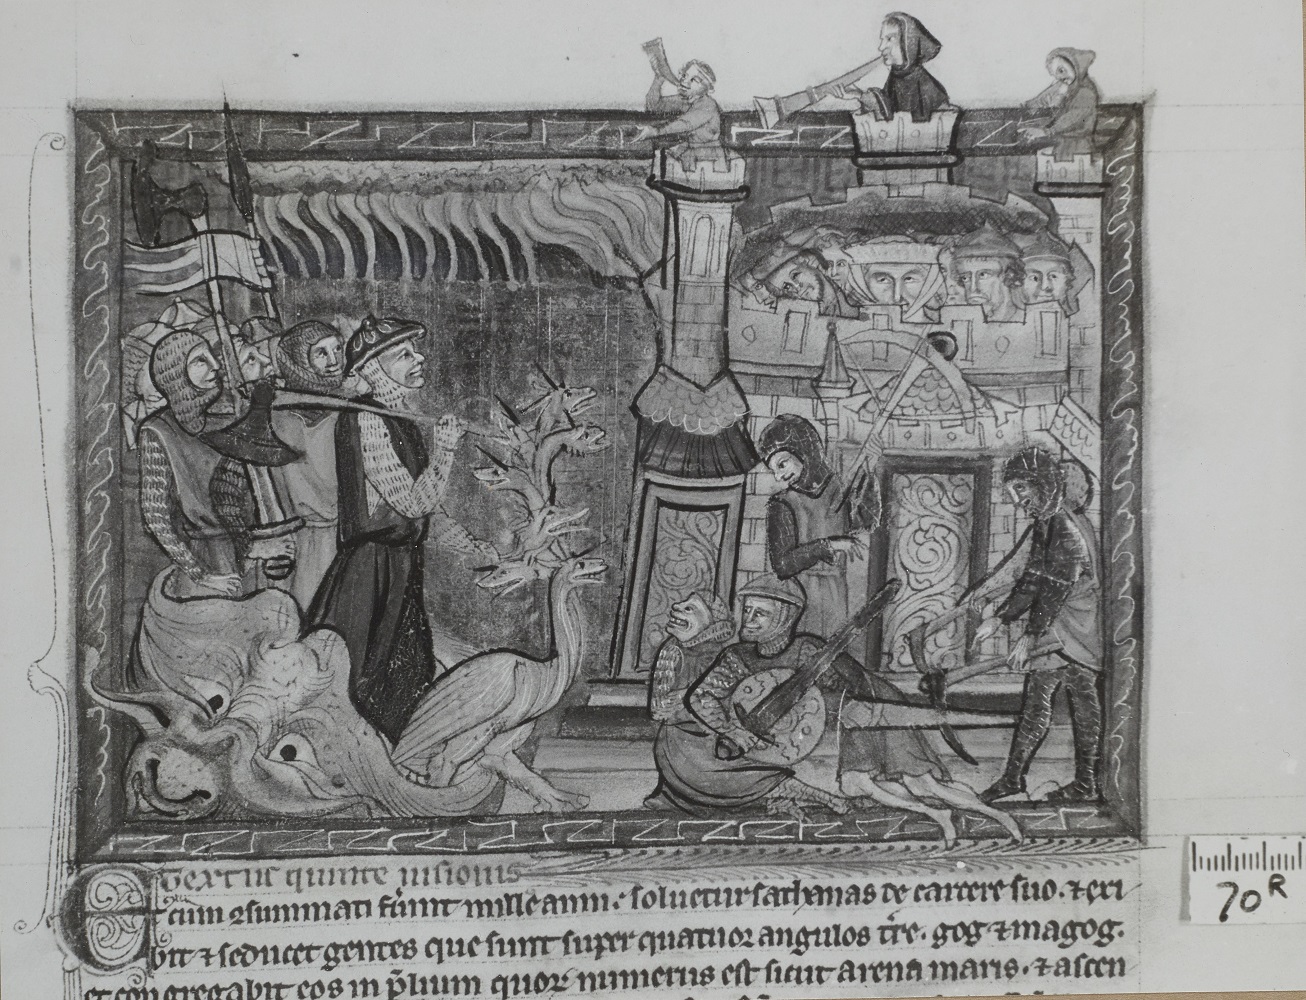 Textus quinte uisionis
Et cum ↄsummati fu̾int mille anni: soluetur sathanas de carcere suo. ⁊ exi
bit ⁊ seducet gentes que sunt super quatuor angulos tr̄e. gog ⁊ magog.
et congregabit eos in p̄lium quoꝝ numerus est sicut arena maris. ⁊ ascen
70R